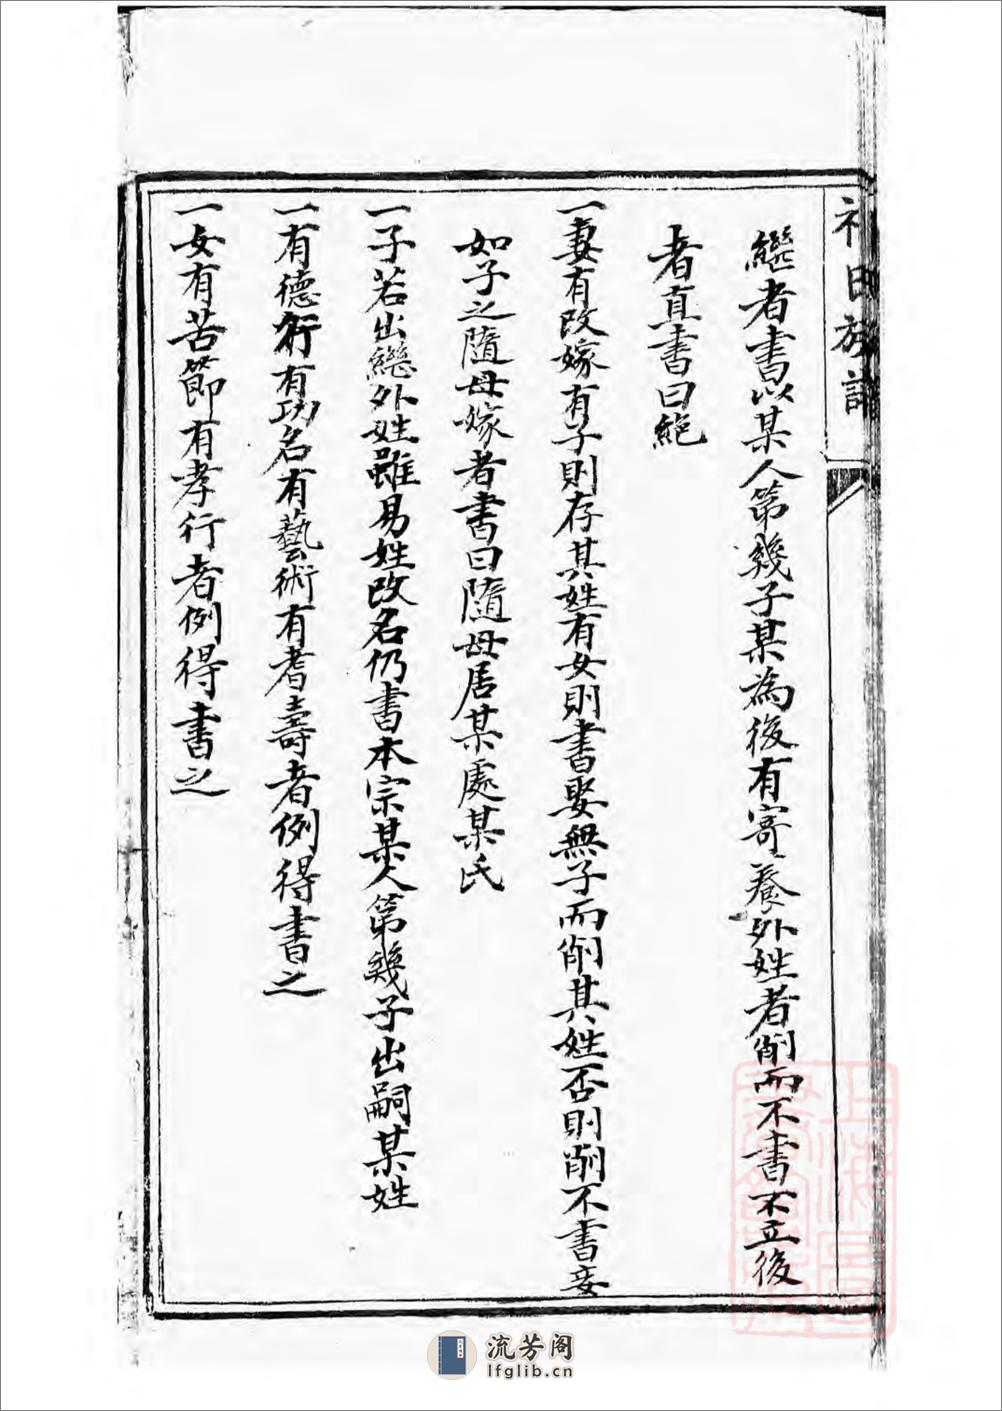 繼者書以某人第幾子某為後有寄養外姓者削而不書不立後
者直書曰絕
一妻有改嫁有子則存其姓有女則書娶無子而削其姓否則削不書妾
如子之隨母嫁者書曰隨母居某處某氏
一子若出繼外姓雖易姓改名仍書本宗某人第幾子出嗣某姓
一有德行有功名有藝術有耆壽者例得書之
一女有苦節有孝行者例得書之
流芳阁
lfglib.cn